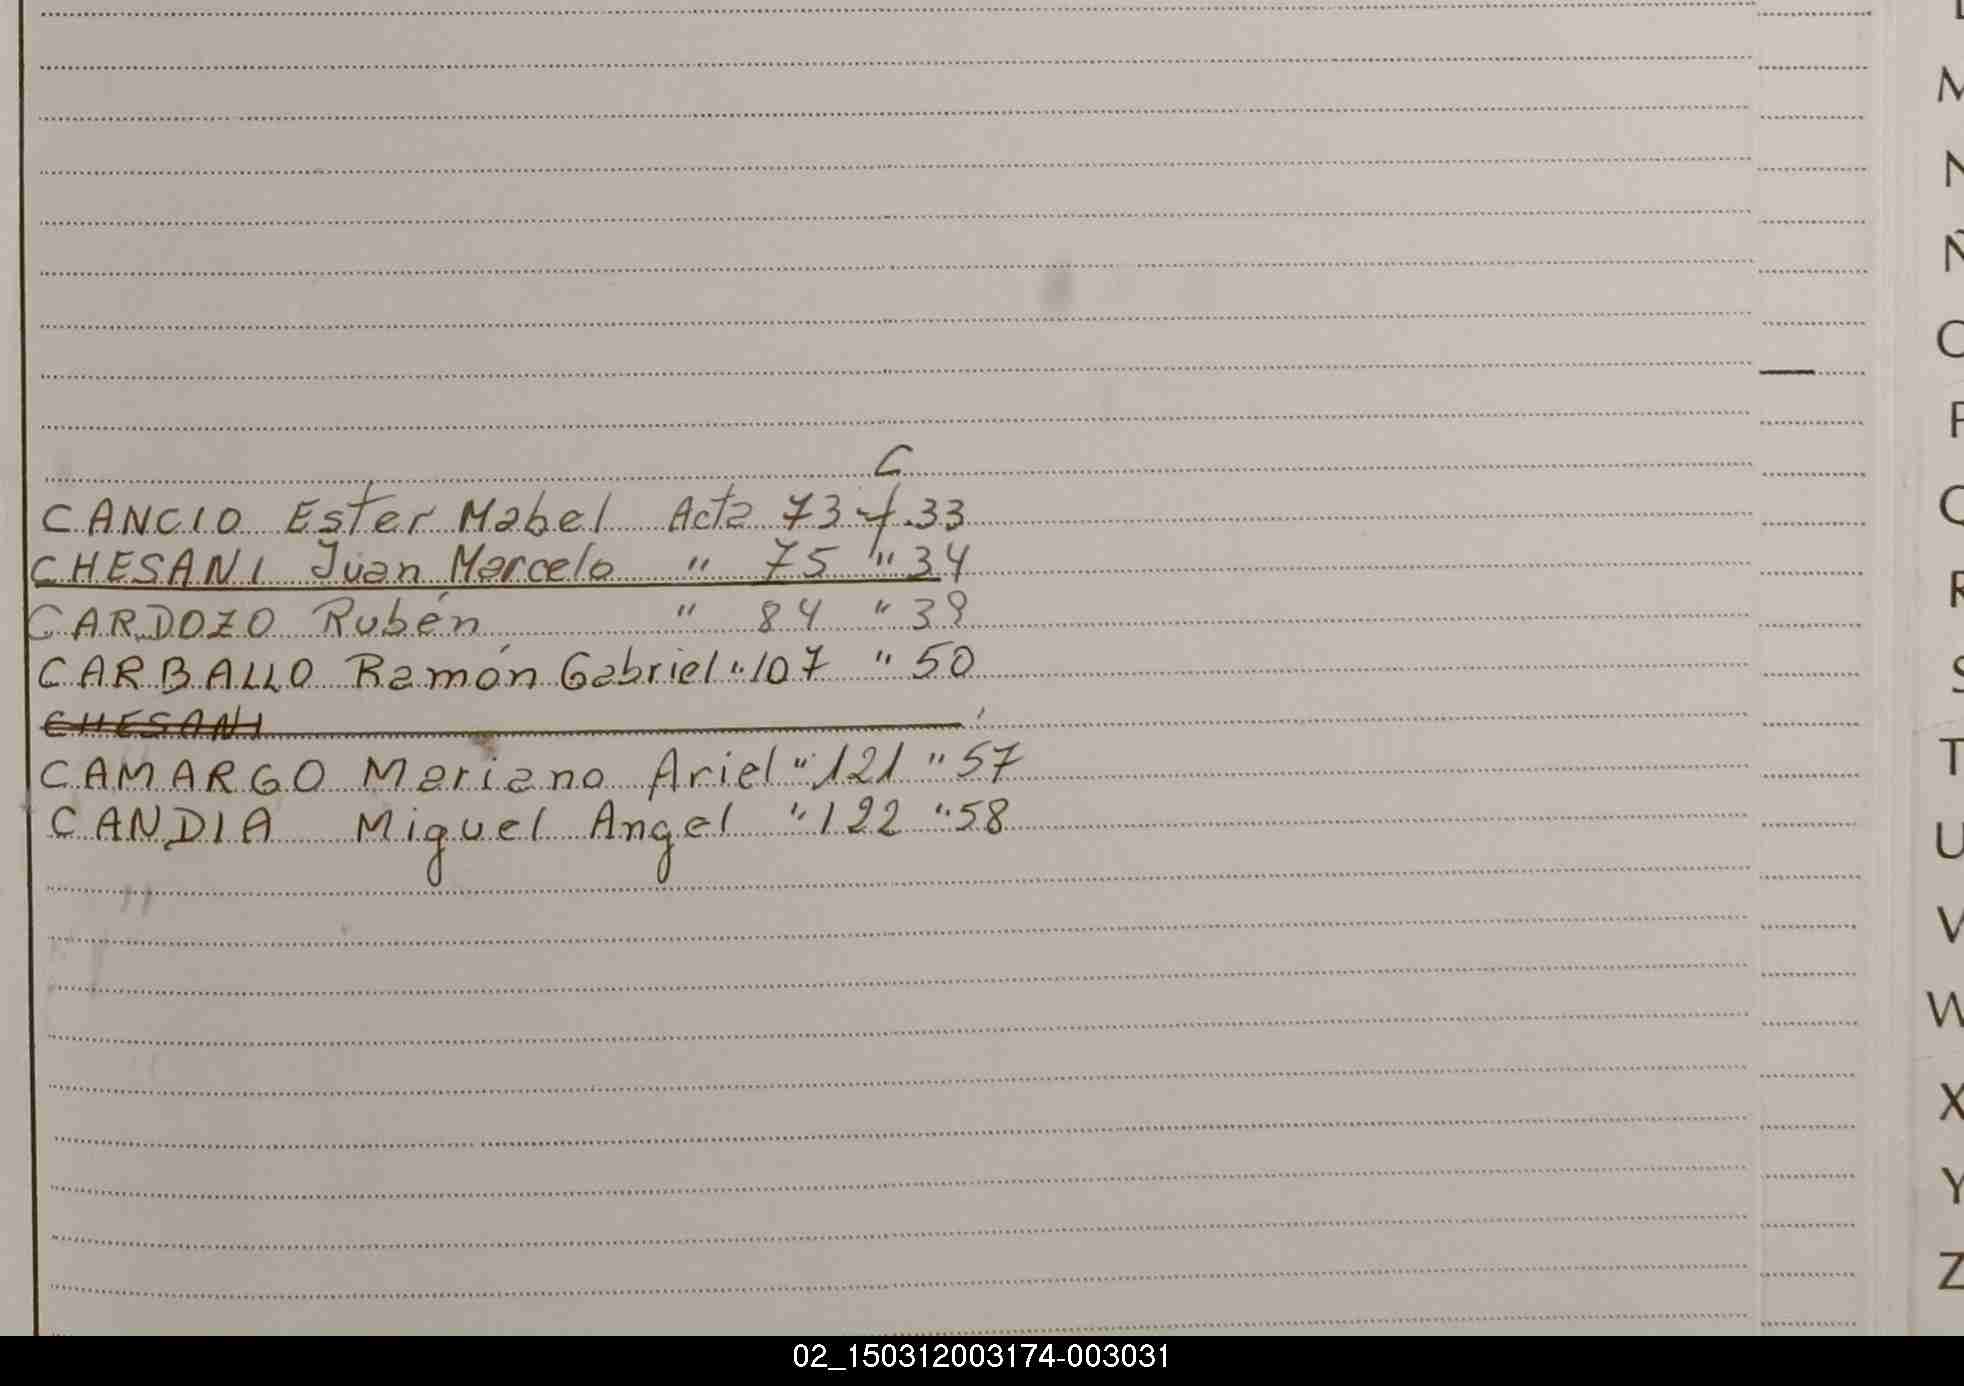 C
CANCIO Ester Mabel Acta 73 f. 33
CHESANI Juan Marcelo " 75 " 34
CARDOZO Rubén " 84 " 39
CARBALLO Ramón Gabriel " 107 " 50
CHESANI
CAMARGO Mariano Ariel " 121 " 57
CANDIA Miguel Angel " 122 " 58
M
N
Ñ
O
P
Q
R
S
T
U
V
W
X
Y
Z
02_150312003174-003031